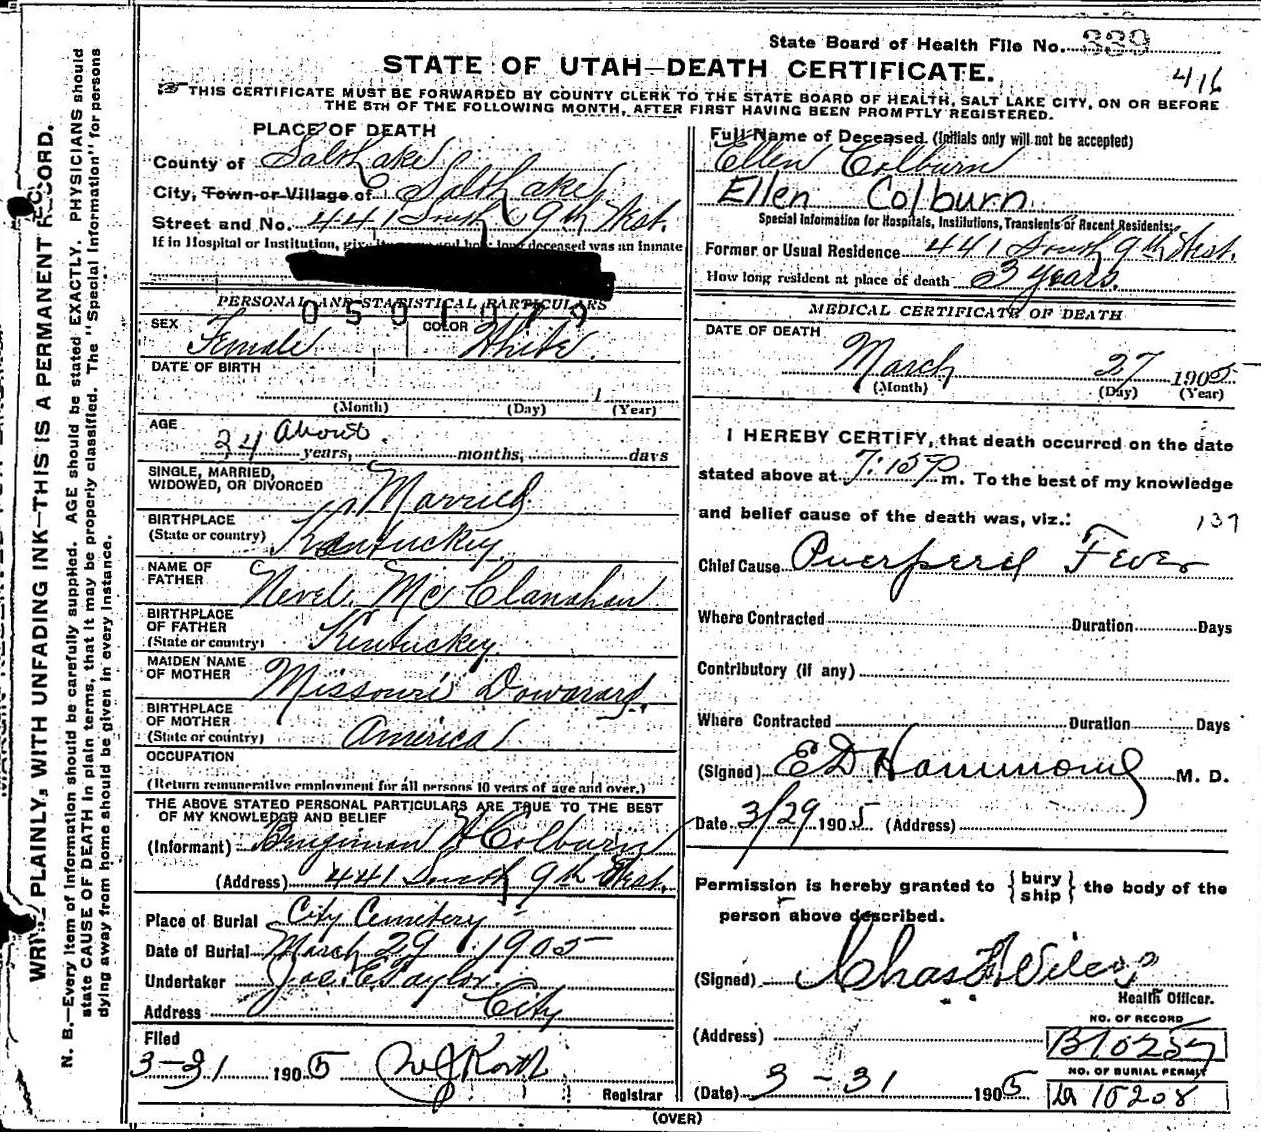 State Board of Health File No. 339
416
STATE OF UTAH—DEATH CERTIFICATE.
THIS CERTIFICATE MUST BE FORWARDED BY COUNTY CLERK TO THE STATE BOARD OF HEALTH, SALT LAKE CITY, ON OR BEFORE
THE 5TH OF THE FOLLOWING MONTH, AFTER FIRST HAVING BEEN PROMPTLY REGISTERED.
WRITE PLAINLY, WITH UNFADING INK—THIS IS A PERMANENT RECORD.
N. B.—Every item of Information should be carefully supplied. AGE should be stated EXACTLY. PHYSICIANS should
state CAUSE OF DEATH in plain terms, that it may be properly classified. The "Special Information" for persons
dying away from home should be given in every instance.
PLACE OF DEATH
County of Salt Lake
City, Town or Village of Salt Lake
Street and No. 441 South 9th West.
If in Hospital or Institution, give its and how long deceased was an inmate
PERSONAL AND STATISTICAL PARTICULARS
0501979
SEX Female COLOR White.
DATE OF BIRTH
1
(Month) (Day) (Year)
AGE
34 about. years, months, days
SINGLE, MARRIED,
WIDOWED, OR DIVORCED Married
BIRTHPLACE
(State or country) Kentucky
NAME OF
FATHER Nevel. Mc Clanahan
BIRTHPLACE
OF FATHER
(State or country) Kentucky.
MAIDEN NAME
OF MOTHER Missouri Dowarard.
BIRTHPLACE
OF MOTHER
(State or country) America
OCCUPATION
(Return remunerative employment for all persons 10 years of age and over.)
THE ABOVE STATED PERSONAL PARTICULARS ARE TRUE TO THE BEST
OF MY KNOWLEDGE AND BELIEF
(Informant) Bengiman H Colburn
(Address) 441 South 9th West.
Place of Burial City Cemetery
Date of Burial March 29 1905
Undertaker Jos. E. Taylor.
Address City
Filed
3-31 1905
Registrar
Full Name of Deceased (Initials only will not be accepted)
Ellen Colburn
Ellen Colburn
Special Information for Hospitals, Institutions, Transients or Recent Residents:
Former or Usual Residence 441 South 9th West.
How long resident at place of death 3 years.
MEDICAL CERTIFICATE OF DEATH
DATE OF DEATH
March 27 1905
(Month) (Day) (Year)
I HEREBY CERTIFY, that death occurred on the date
stated above at 7:15 P m. To the best of my knowledge
and belief cause of the death was, viz.: 137
Chief Cause Puerperel Fever
Where Contracted Duration Days
Contributory (if any)
Where Contracted Duration Days
(Signed) E D Hammond M. D.
Date 3/29 1905 (Address)
Permission is hereby granted to { bury ship } the body of the
person above described.
(Signed) Chas F Wilcox
Health Officer.
(Address)
NO. OF RECORD
B10257
NO. OF BURIAL PERMIT
(Date) 3-31 1905
10208
(OVER)